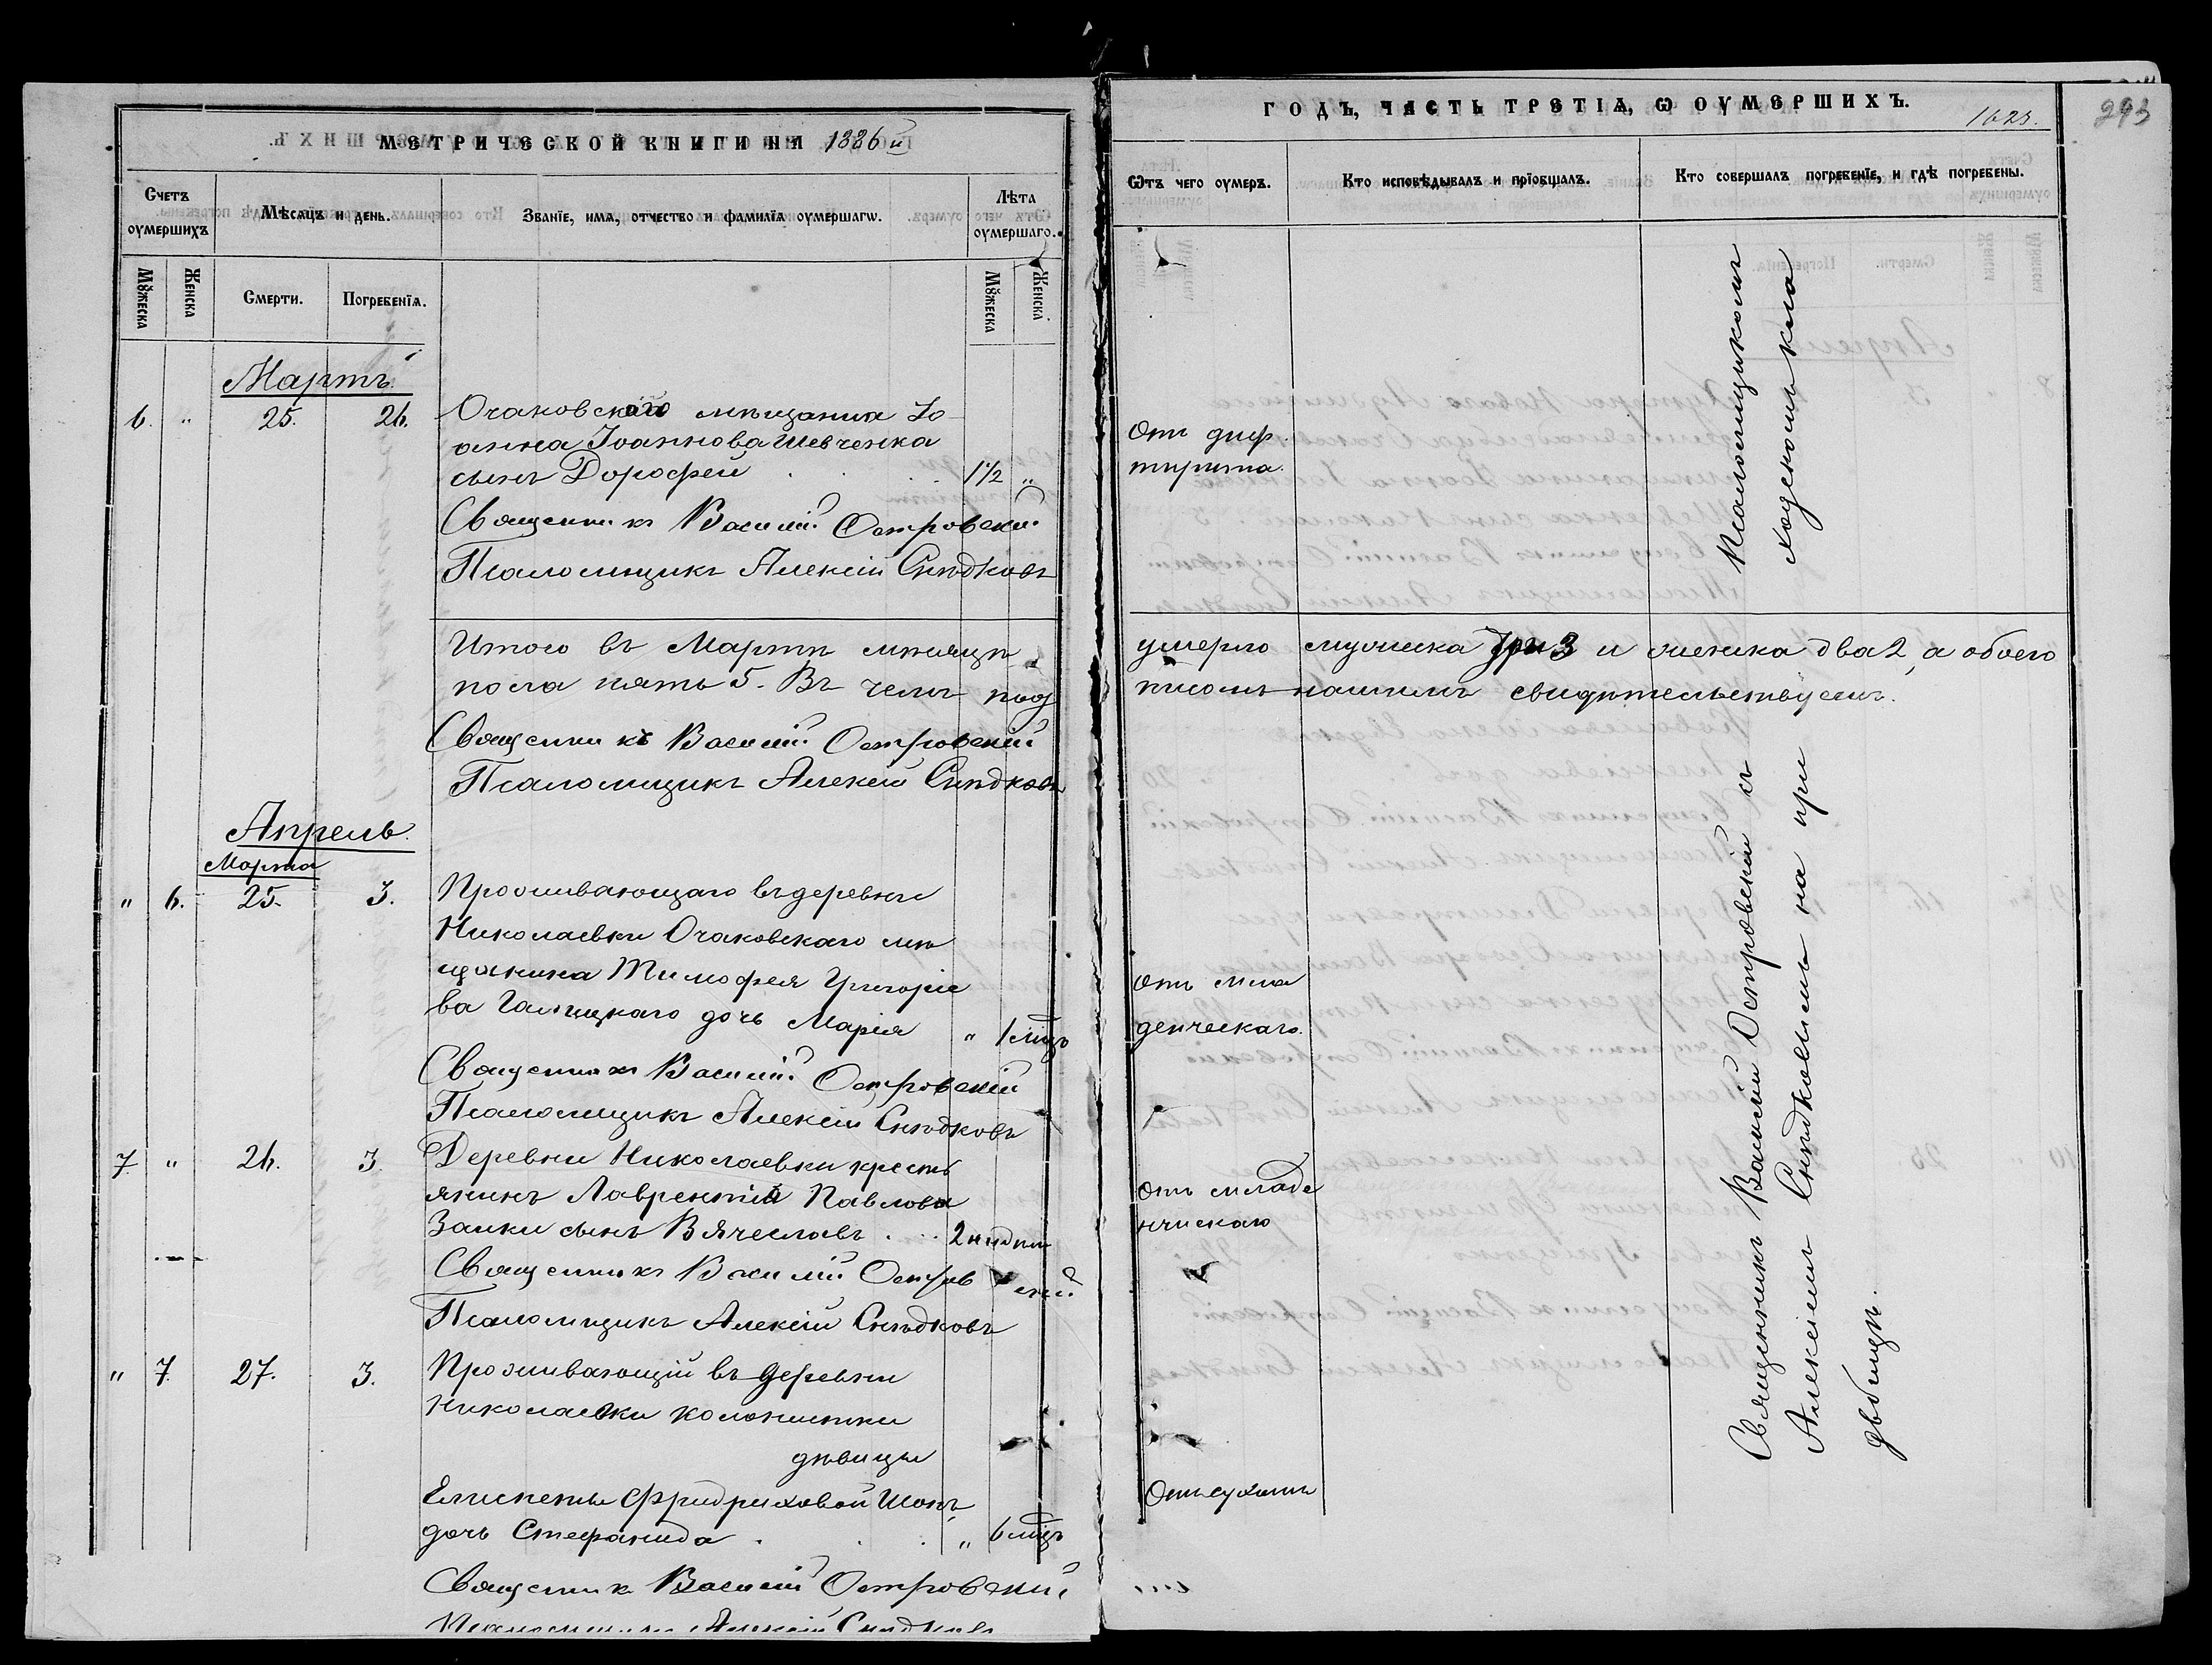 МЕТРИЧЕСКОЙ КНИГИ НА 1886 й
Счетъ оумершихъ
Мѣсяцъ и день.
Званїе, имѧ, отчество и фамилїѧ оумершагѡ.
Лѣта оумершаго.
Мꙋжеска
Женска
Смерти.
Погребенїѧ.
Мꙋжеска
Женска
Мартъ
6. " 25. 26. Очаковскаго мѣщанина Іо
анна Іоаннова Шевченка
сынъ Дорофей 1½ "
Священникъ Василій Островскій
Псаломщикъ Алексій Снѣдковъ
Итого въ Мартѣ мѣсяцѣ
пола пять 5. Въ чемъ под
Священникъ Василій Островскій
Псаломщикъ Алексій Снѣдковъ
Апрель.
Марта
" 6. 25. 3. Проживающаго въ деревни
Николаевки Очаковскаго мѣ
щанина Тимофея Григоріе
ва Галицкаго дочь Марія " 1 мцъ
Священникъ Василій Островскій
Псаломщикъ Алексій Снѣдковъ
7. " 26. 3. Деревни Николаевки кресть
янинъ Лаврентія Павлова
Заики сынъ Вячеславъ 2 недѣли
Священникъ Василій Островскій
Псаломщикъ Алексій Снѣдковъ
" 7. 27. 3. Проживающій въ деревни
Николаевки колонистки
дѣвицы
Елисаветы Фридриховой Шокъ
дочь Стефанида " 6 мцъ
Священникъ Василій Островскій
Псаломщикъ Алексій Снѣдковъ
ГОДЪ, ЧАСТЬ ТРЕТІѦ, Ѡ ОУМЕРШИХЪ.
1623.
293
Ѿтъ чего оумеръ.
Кто исповѣдывалъ и прїобщалъ.
Кто совершалъ погребенїе, и гдѣ погребены.
Отъ диф
терита.
умерло мужеска три 3 и женска два 2, а обоего
писомъ нашимъ свидѣтельствуемъ.
Отъ мла
денческаго.
Отъ младе
нческаго
Отъ сухотъ
Священникъ Василій Островскій съ Псаломщикомъ
Алексіемъ Снѣдковымъ на при
ходскомъ кла
дбищѣ.